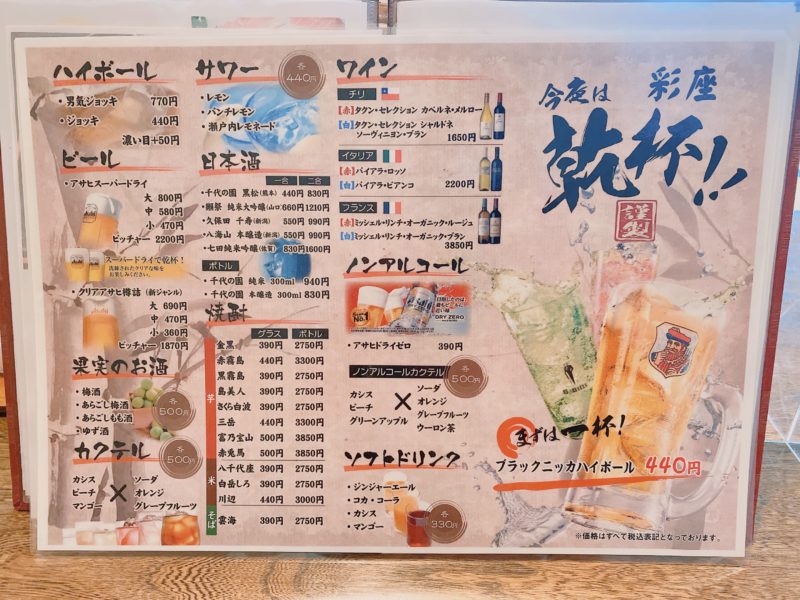 ハイボール
・男気ジョッキ 770円
・ジョッキ 440円
濃い目+50円
ビール
・アサヒスーパードライ
大 800円
中 580円
小 470円
ピッチャー 2200円
スーパードライで乾杯!
洗練されたクリアな味を
お楽しみください。
・クリアアサヒ樽詰(新ジャンル)
大 690円
中 470円
小 360円
ピッチャー 1870円
果実のお酒
各500円
・梅酒
・あらごし梅酒
・あらごしもも酒
・ゆず酒
カクテル
各500円
カシス ソーダ
ピーチ × オレンジ
マンゴー グレープフルーツ
サワー
各440円
・レモン
・パンチレモン
・瀬戸内レモネード
日本酒
一合 二合
・千代の園 黒松(熊本) 440円 830円
・獺祭 純米大吟醸(山口) 660円 1210円
・久保田 千寿(新潟) 550円 990円
・八海山 本醸造(新潟) 550円 990円
・七田純米吟醸(佐賀) 830円 1600円
ボトル
・千代の園 純米 300ml 940円
・千代の園 本醸造 300ml 830円
焼酎
グラス ボトル
芋
金黒 390円 2750円
赤霧島 440円 3300円
黒霧島 390円 2750円
島美人 390円 2750円
さくら白波 390円 2750円
三岳 440円 3300円
富乃宝山 500円 3850円
赤兎馬 500円 3850円
米
八千代座 390円 2750円
白岳しろ 390円 2750円
川辺 440円 3000円
そば
雲海 390円 2750円
ワイン
チリ
【赤】タクン・セレクション カベルネ・メルロー
【白】タクン・セレクション シャルドネ
ソーヴィニヨン・ブラン
1650円
イタリア
【赤】パイアラ・ロッソ
【白】パイアラ・ビアンコ 2200円
フランス
【赤】ミッシェル・リンチ・オーガニック・ルージュ
【白】ミッシェル・リンチ・オーガニック・ブラン
3850円
ノンアルコール
目指したのは、
最もビールに
近い味
DRY ZERO
・アサヒドライゼロ 390円
ノンアルコールカクテル
各500円
カシス ソーダ
ピーチ × オレンジ
グリーンアップル グレープフルーツ
ウーロン茶
ソフトドリンク
・ジンジャーエール
・コカ・コーラ
・カシス
・マンゴー
各330円
今夜は 彩座
乾杯!!
謹製
まずは一杯!
ブラックニッカハイボール 440円
※価格はすべて税込表記となっております。